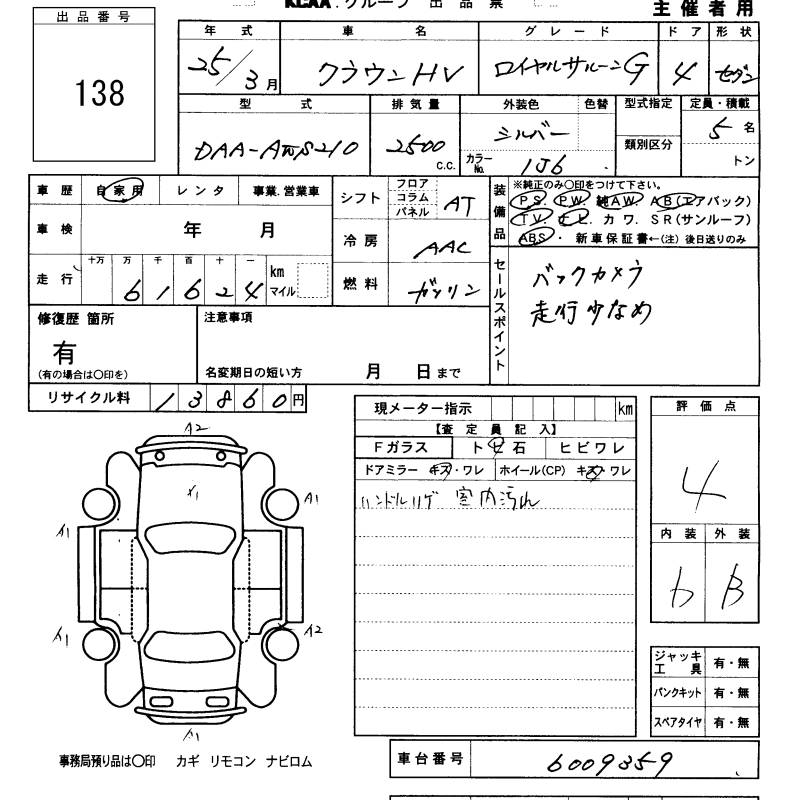 KCAA.グループ 出品票
主催者用
出品番号
138
年式 車名 グレード ドア 形状
25/3月 クラウンHV ロイヤルサルーンG 4 セダン
型式 排気量 外装色 色替 型式指定 定員・積載
DAA-AWS210 2500 C.C. シルバー 類別区分 5名
カラーNo. 1J6 トン
車歴 自家用 レンタ 事業.営業車
車検 年 月
走行 十万 万 千 百 十 一 km マイル
61624
シフト フロア コラム パネル AT
冷房 AAC
燃料 ガソリン
装備品 ※純正のみ〇印をつけて下さい。
PS. PW. 純AW. AB(エアバック)
TV. ナビ. カワ. SR(サンルーフ)
ABS・ 新車保証書←(注) 後日送りのみ
セールスポイント
バックカメラ
走行少なめ
修復歴 箇所
有
(有の場合は〇印を)
注意事項
名変期日の短い方 月 日まで
リサイクル料 13860円
現メーター指示 km
【査定員記入】
Fガラス トビ石 ヒビワレ
ドアミラー キズ・ワレ ホイール(CP) キズ・ワレ
ハンドルリゲ 室内汚れ
評価点
4
内装 外装
b B
A2
X1
A1
A1
A1
A2
A1
ジャッキ工具 有・無
パンクキット 有・無
スペアタイヤ 有・無
事務局預り品は〇印 カギ リモコン ナビロム
車台番号 6009359